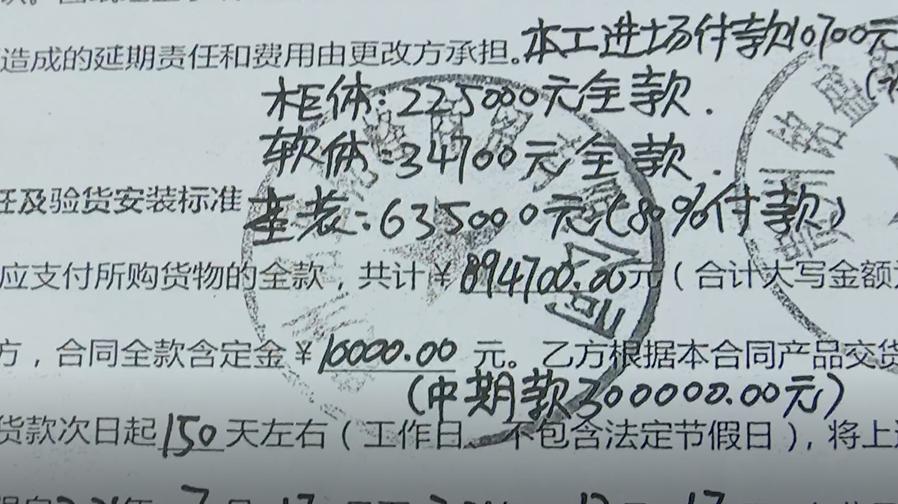 造成的延期责任和费用由更改方承担。本工进场付款10700元
柜体:225000元全款.
软体:34700元全款.
任及验货安装标准 整装:635000元(80%付款)
应支付所购货物的全款,共计¥894700.00元(合计大写金额
方,合同全款含定金¥10000.00元。乙方根据本合同产品交货
(中期款300000.00元)
货款次日起150天左右(工作日,不包含法定节假日),将上